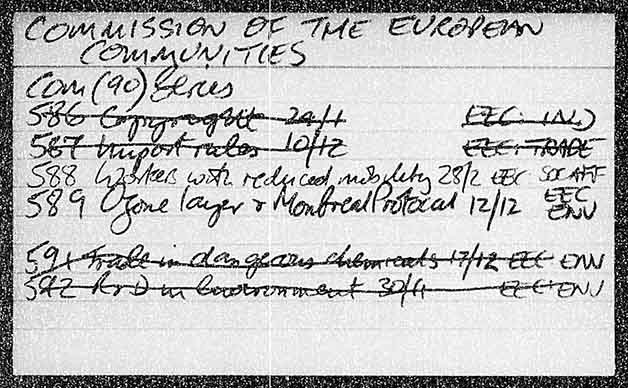 COMMISSION OF THE EUROPEAN
COMMUNITIES
COM(90) Series
586 Copyright 24/1 EEC: IND
587 Import rules 10/12 EEC: TRADE
588 Workers with reduced mobility 28/2 EEC SOC AFF
589 Ozone layer & Montreal Protocol 12/12 EEC ENV
591 Trade in dangerous chemicals 17/12 EEC ENV
592 R & D in Environment 30/4 EEC: ENV